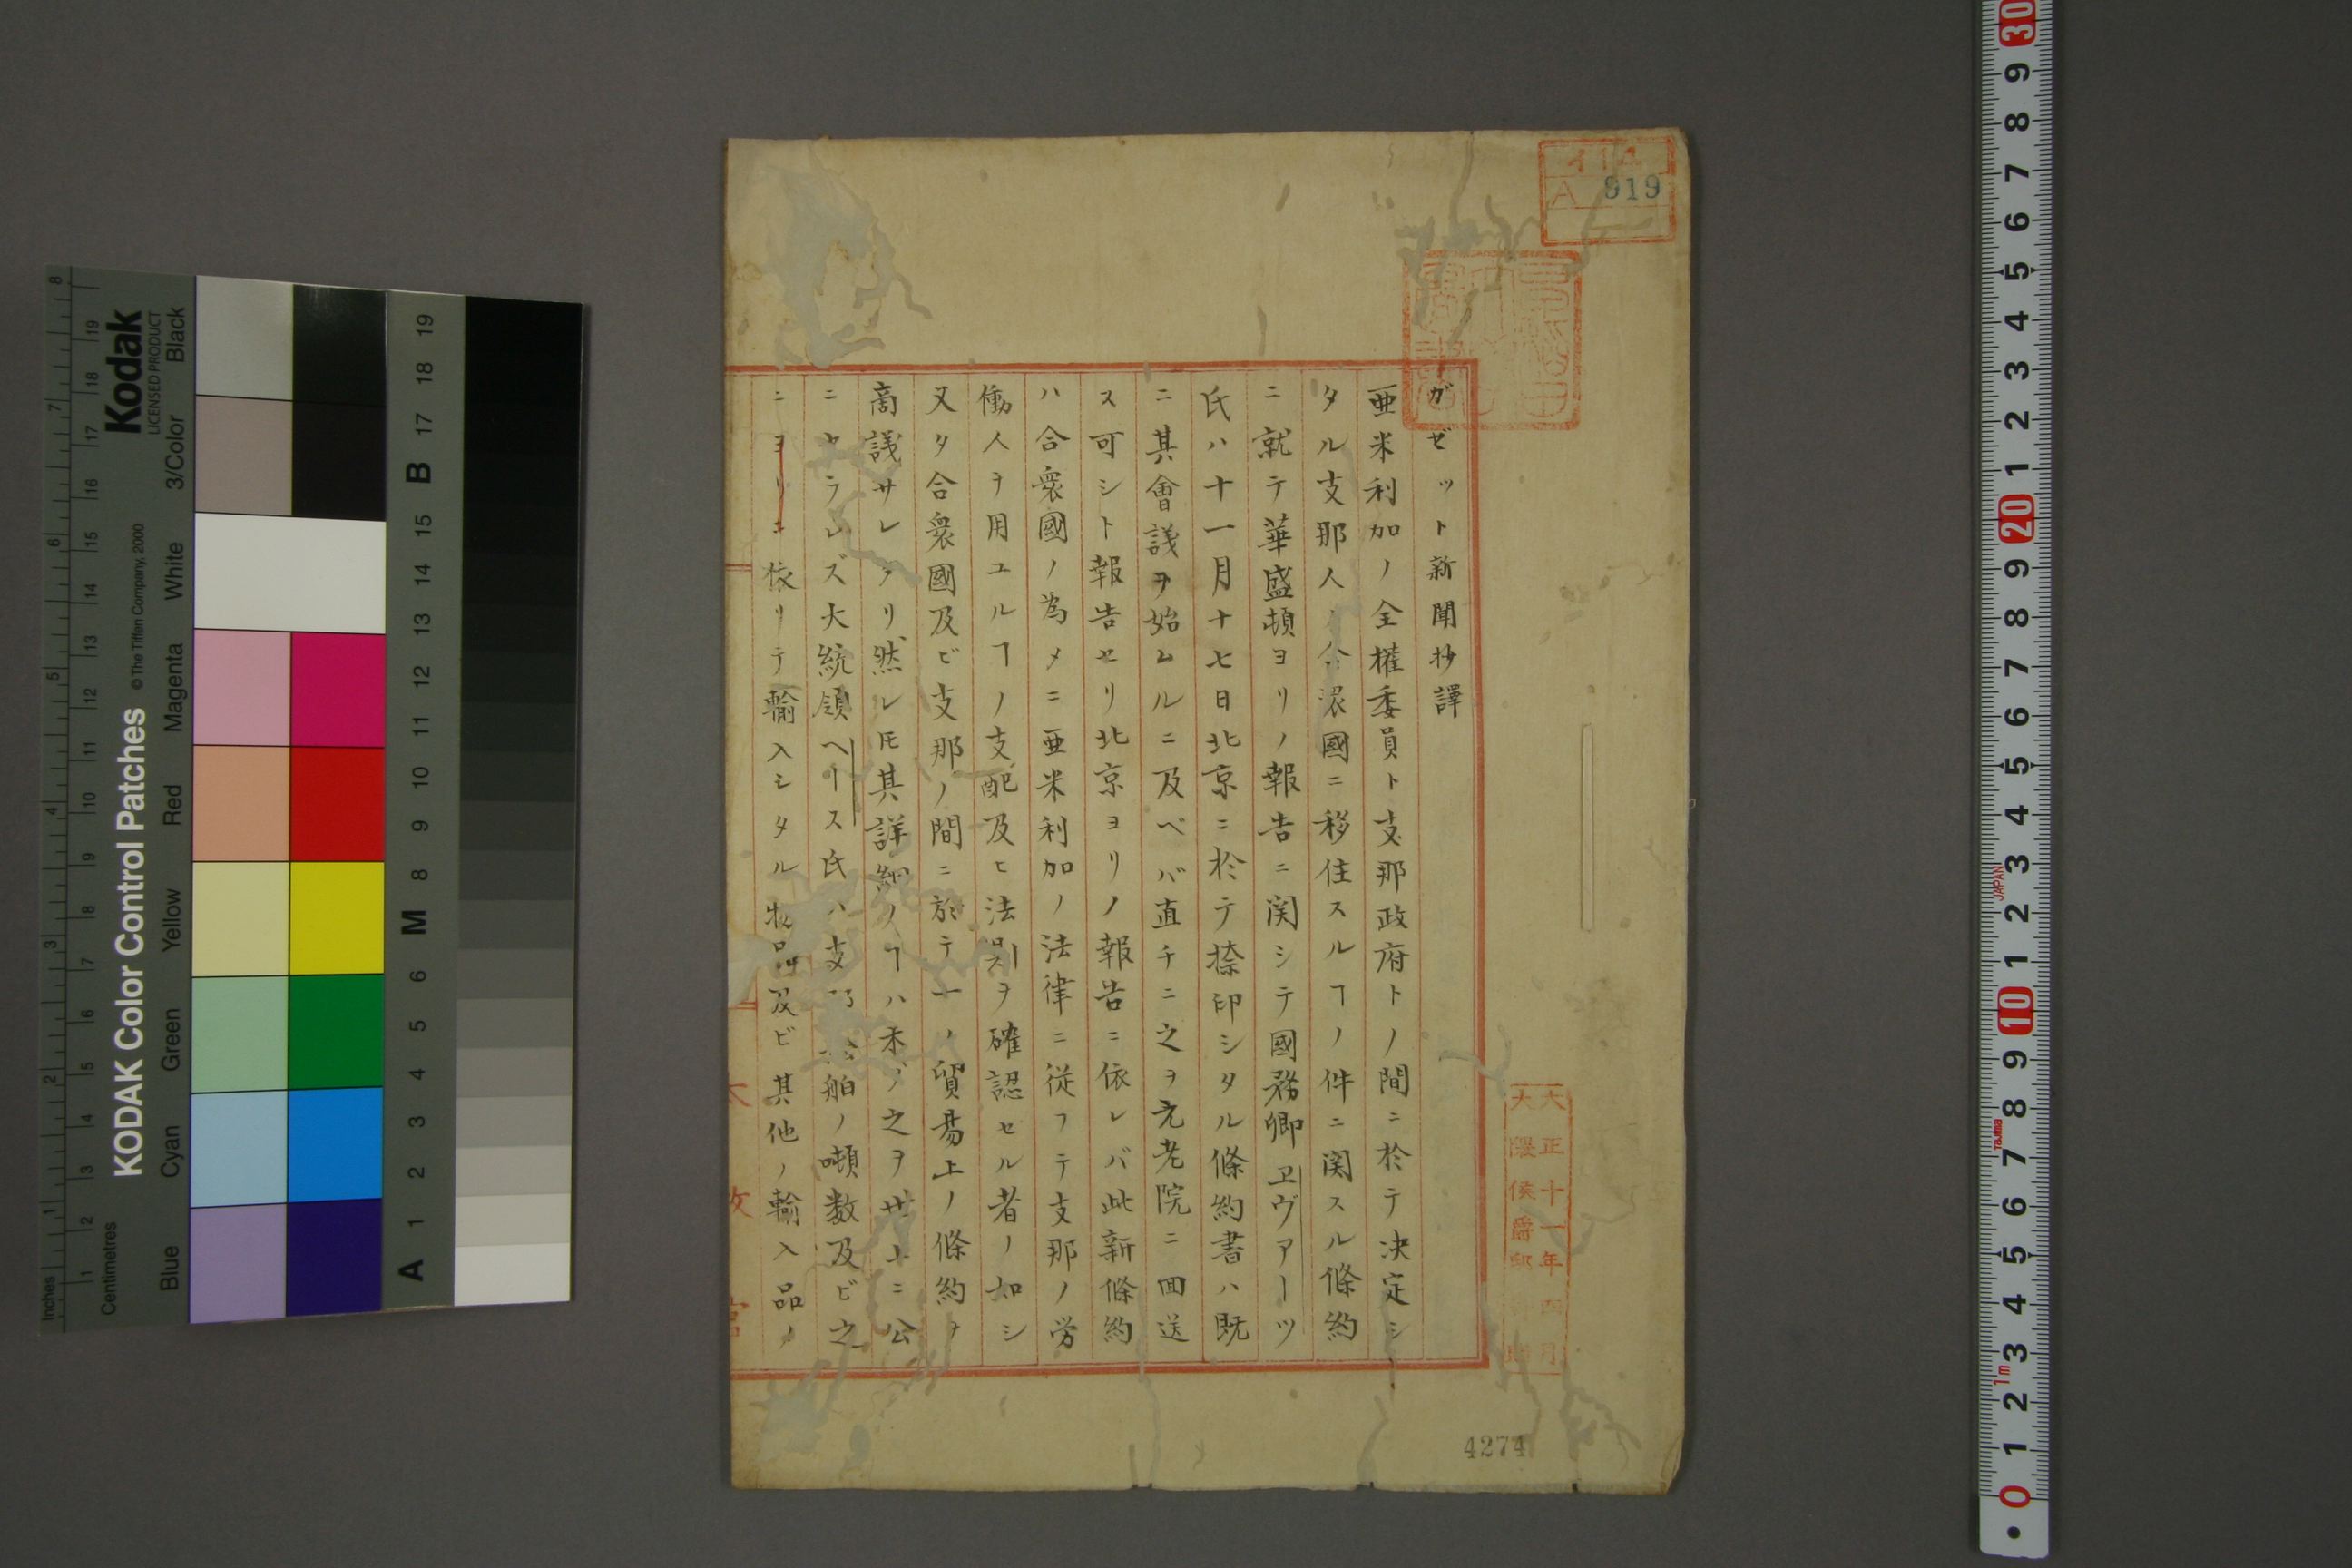 ガゼット新聞抄譯
亜米利加ノ全権委員ト支那政府トノ間ニ於テ決定シ
タル支那人ノ合衆國ニ移住スルヿノ件ニ関スル條約
ニ就テ華盛頓ヨリノ報告ニ関シテ國務卿ヱヴアーツ
氏ハ十一月十七日北京ニ於テ捺印シタル條約書ハ既
ニ其會議ヲ始ムルニ及ベバ直チニ之ヲ元老院ニ回送
ス可シト報告セリ北京ヨリノ報告ニ依レバ此新條約
ハ合衆國ノ為メニ亜米利加ノ法律ニ従フテ支那ノ労
働人ヲ用ユルヿノ支配及ヒ法則ヲ確認セル者ノ如シ
又タ合衆國及ビ支那ノ間ニ於テ一ノ貿易上ノ條約ヲ
商議サレタリ然レ𪜈其詳細ノヿハ未ダ之ヲ世上ニ公
ニセラレズ大統領ヘース氏ハ支那船舶ノ噸数及ビ之
ニヨリニ依リテ輸入シタル物品及ビ其他ノ輸入品ノ
イ14
A 919
大正十一年四月
大隈侯爵邸寄贈
4274
KODAK Color Control Patches
©The Tiffen Company, 2000
Kodak
LICENSED PRODUCT
Inches
Centimetres
Blue Cyan Green Yellow Red Magenta White 3/Color Black
A 1 2 3 4 5 6 M 8 9 10 11 12 13 14 15 B 17 18 19
JAPAN
Tajima
1m